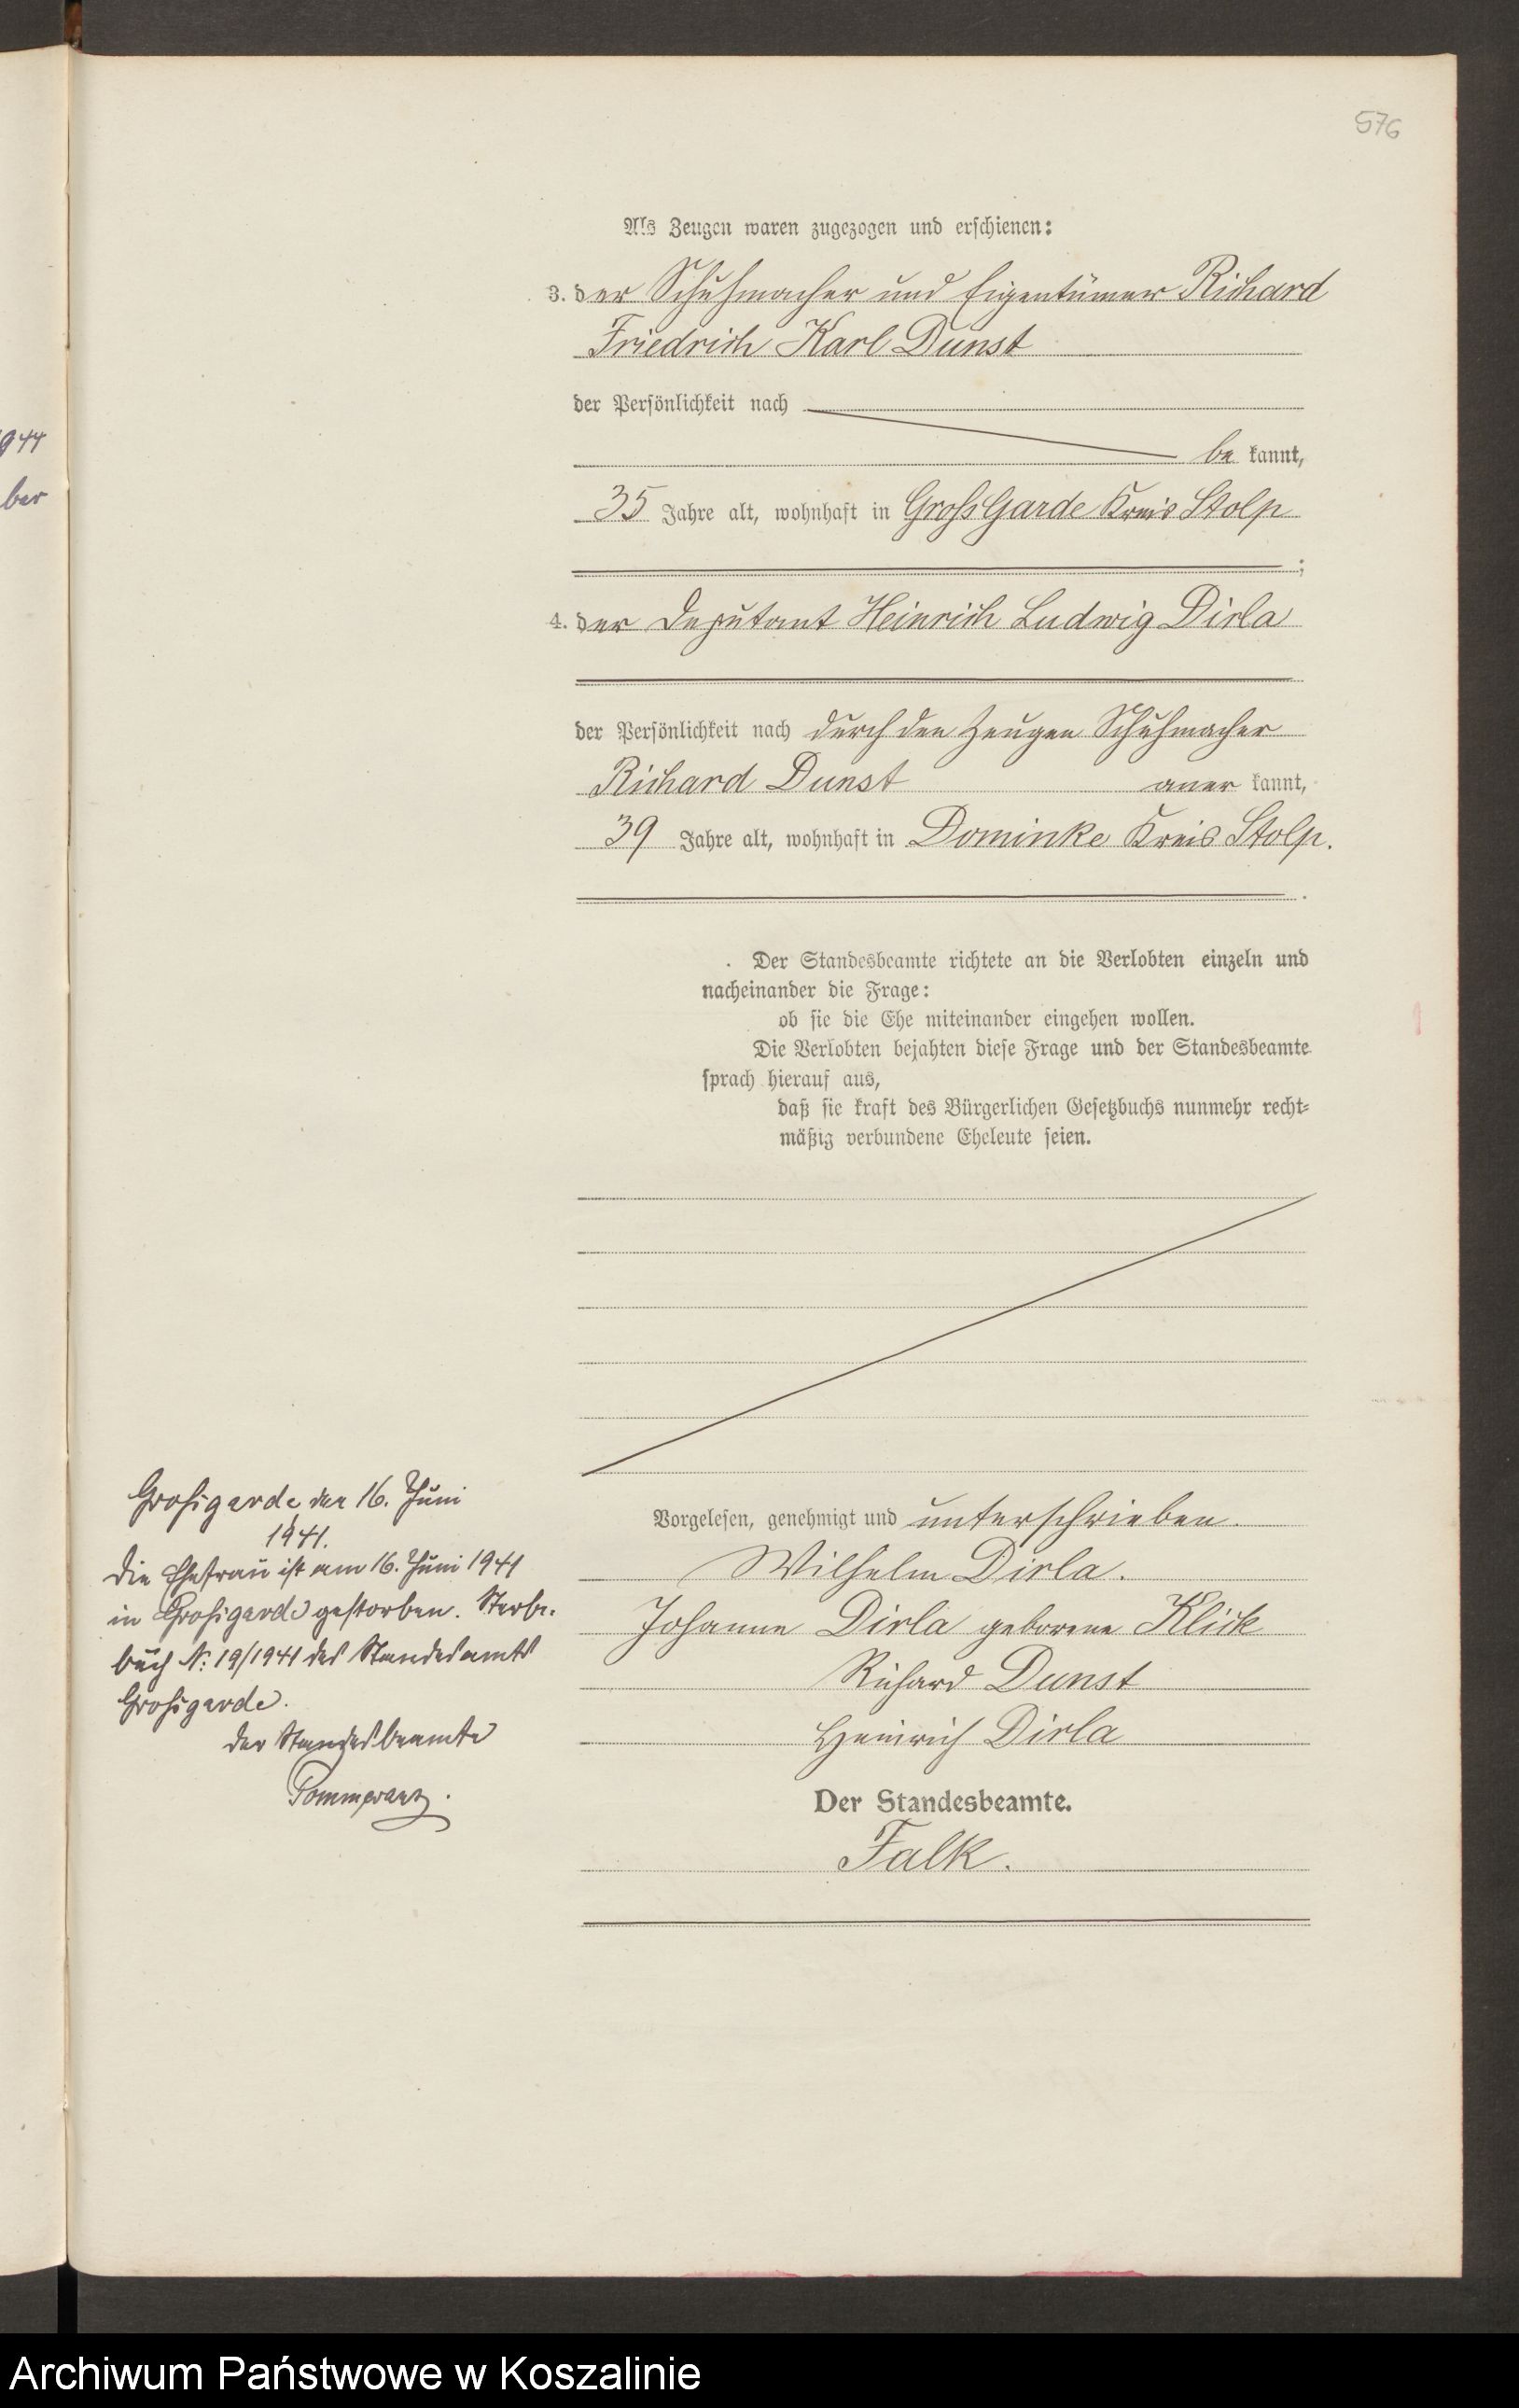 576
Als Zeugen waren zugezogen und erschienen:
3. der Schuhmacher und Eigentümer Richard
Friedrich Karl Dunst
der Persönlichkeit nach
be kannt,
35 Jahre alt, wohnhaft in Groß Garde Kreis Stolp
;
4. der Deputant Heinrich Ludwig Dirla
der Persönlichkeit nach durch den Zeugen Schuhmacher
Richard Dunst aner kannt,
39 Jahre alt, wohnhaft in Dominke Kreis Stolp.
.
Der Standesbeamte richtete an die Verlobten einzeln und
nacheinander die Frage:
ob sie die Ehe miteinander eingehen wollen.
Die Verlobten bejahten diese Frage und der Standesbeamte
sprach hierauf aus,
daß sie kraft des Bürgerlichen Gesetzbuchs nunmehr recht-
mäßig verbundene Eheleute seien.
Vorgelesen, genehmigt und unterschrieben.
Wilhelm Dirla.
Johanne Dirla geborene Klick
Richard Dunst
Heinrich Dirla
Der Standesbeamte.
Falk.
Großgarde, den 16. Juni
1941.
Die Ehefrau ist am 16. Juni 1941
in Großgarde gestorben. Sterbe-
buch N: 19/1941 des Standesamts
Großgarde.
Der Standesbeamte
Pommeranz.
944
ber
Archiwum Państwowe w Koszalinie